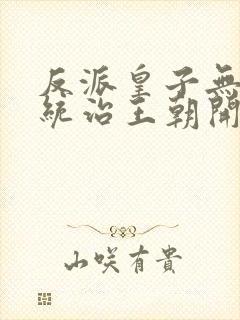 反派皇子無
統治王朝開
山咲有貴